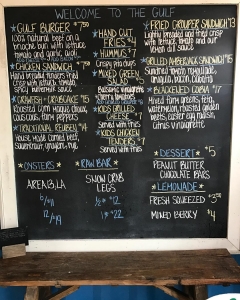 WELCOME TO THE GULF
*GULF BURGER *
100% natural beef on a
brioche bun with lettuce
tomato and garlic aioli
*CHICKEN SANDWICH *
Hand breaded tenders fried
crisp with lettuce, tomato,
*CRAWFISH + CRABCAKE *15
Roasted corn maque choux,
couscous, farm peppers
*TRADITIONAL REUBEN *14
House made corned beef,
Sauerkraut, rye
*HAND CUT
FRIES $4
*HUMMUS $7
Crispy pita chips
*MIXED GREEN
SALAD
Balsamic vinaigrette
cherry tomatoes
CHEESE $7
Served with fries
*KIDS CHICKEN
TENDERS $7
Served with fries
*FRIED GROUPER SANDWICH $13
Lightly breaded and fried crisp
with lettuce, tomato and
lemon dill sauce
*GRILLED AMBERJACK SANDWICH $15
arugula, bacon, ciabatta
*BLACKENED COBIA $17
Mixed farm greens, feta,
watermelon, roasted golden
beets, easter egg radish,
citrus vinaigrette
*OYSTERS*
AREA 13, LA
6/$11
12/$19
*RAW BAR*
SNOW CRAB
LEGS
1/2# $12
1# $22
*DESSERT* $5
PEANUT BUTTER
CHOCOLATE BARS
*LEMONADE*
FRESH SQUEEZED $3
MIXED BERRY $4